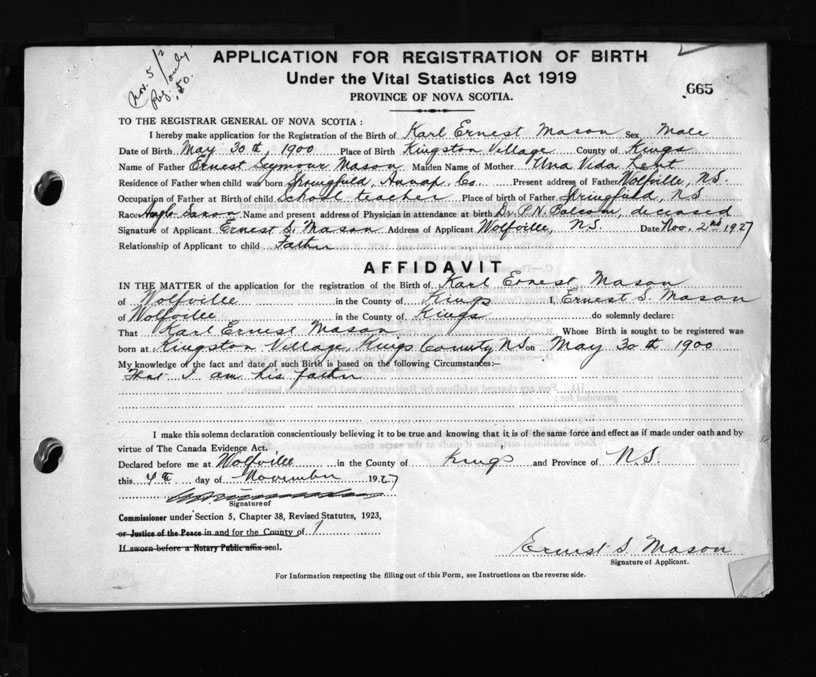 Nov. 5/2
Reg. only
.50.
APPLICATION FOR REGISTRATION OF BIRTH
Under the Vital Statistics Act 1919
665
PROVINCE OF NOVA SCOTIA.
TO THE REGISTRAR GENERAL OF NOVA SCOTIA:
I hereby make application for the Registration of the Birth of Karl Ernest Mason Sex Male
Date of Birth May 30th, 1900 Place of Birth Kingston Village County of Kings
Name of Father Ernest Seymour Mason Maiden Name of Mother Una Vida Lent
Residence of Father when child was born Springfield, Annap. Co. Present address of Father Wolfville, N.S.
Occupation of Father at Birth of child School teacher Place of birth of Father Springfield, N.S
Race Anglo Saxon Name and present address of Physician in attendance at birth Dr. P.N. Balcom, deceased
Signature of Applicant Ernest S. Mason Address of Applicant Wolfville, N.S. Date Nov. 2nd 1927
Relationship of Applicant to child Father
AFFIDAVIT
IN THE MATTER of the application for the registration of the Birth of Karl Ernest Mason
of Wolfville in the County of Kings I, Ernest S. Mason
of Wolfville in the County of Kings do solemnly declare:
That Karl Ernest Mason Whose Birth is sought to be registered was
born at Kingston Village, Kings County, N.S on May 30th 1900
My knowledge of the fact and date of such Birth is based on the following Circumstances:—
That I am his father
I make this solemn declaration conscientiously believing it to be true and knowing that it is of the same force and effect as if made under oath and by
virtue of The Canada Evidence Act.
Declared before me at Wolfville in the County of Kings and Province of N.S.
this 4th day of November 1927
Signature of
Commissioner under Section 5, Chapter 38, Revised Statutes, 1923,
or Justice of the Peace in and for the County of
If sworn before a Notary Public affix seal.
Ernest S. Mason
Signature of Applicant.
For Information respecting the filling out of this Form, see Instructions on the reverse side.